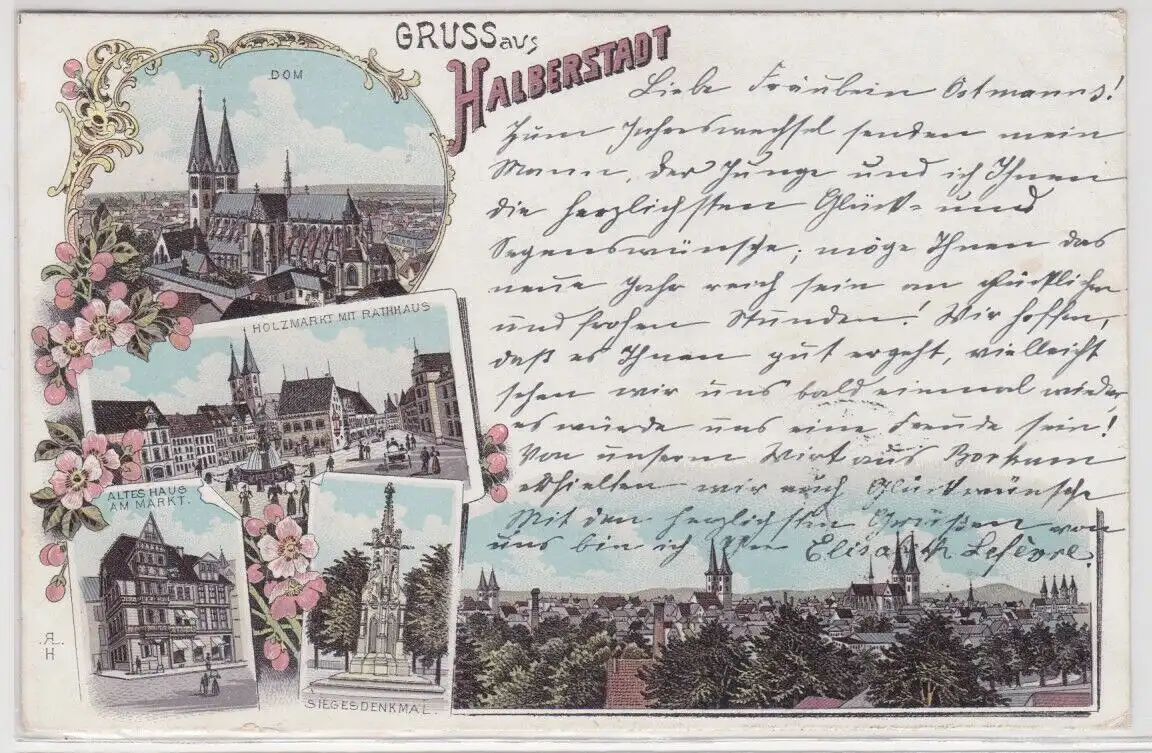 GRUSS aus
HALBERSTADT
DOM
Liebe Fräulein Ostmanns!
Zum Jahreswechsel senden mein
Mann, der Junge und ich Ihnen
die herzlichsten Glück- und
Segenswünsche; möge Ihnen das
neue Jahr reich sein an glücklichen
und frohen Stunden! Wir hoffen,
daß es Ihnen gut ergeht, vielleicht
sehen wir uns bald einmal wieder,
es würde uns eine Freude sein!
Von unserm Wirt aus Borkum
erhielten wir auch Glückwünsche
Mit den herzlichsten Grüßen von
uns bin ich Ihre Elisabeth Lefèvre.
HOLZMARKT MIT RATHHAUS
ALTES HAUS
AM MARKT.
SIEGESDENKMAL.
H